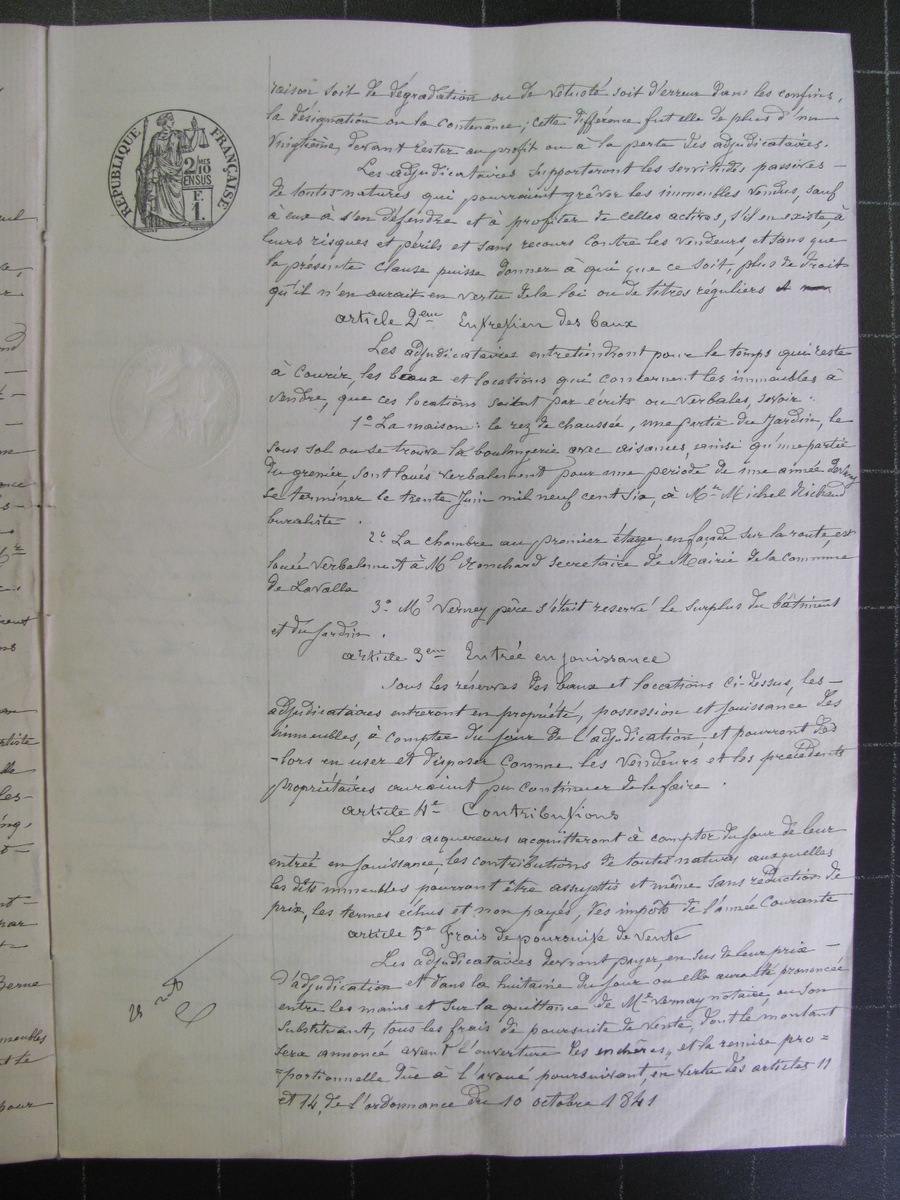 raison soit de dégradation ou de vétusté soit d'erreur dans les confins,
la désignation ou la contenance; cette différence fut elle de plus d'un
Vingtième, devant rester au profit ou à la perte des adjudicataires.
Les adjudicataires supporteront les servitudes passives —
de toutes natures qui pourraient grèver les immeubles vendus, sauf
à eux à s'en défendre et à profiter de celles actives, s'il en existe, à
leurs risques et périls et sans recours contre les vendeurs et sans que
la présente clause puisse donner à qui que ce soit, plus de droit
qu'il n'en aurait en vertu de la loi ou de titres réguliers
article 2em Entretien des baux
Les adjudicataires entretiendront pour le temps qui reste
à courir, les baux et locations qui concernent les immeubles à
vendre, que ces locations soient par écrits ou verbales, savoir:
1º La maison: le rez de chaussée, une partie du Jardin, le
sous sol ou se trouve la boulangerie avec aisances, ainsi qu'une partie
du grenier, sont loués verbalement pour une période de une année devant
se terminer le trente Juin mil neuf cent six, à Mr Michel Richard
buraliste.
2º La chambre au premier étage, en façade sur la route, est
louée verbalement à Ml Ronchard Secrétaire de Mairie de la Commune
de Lavalla
3º Mr Vernay père s'était reservé le surplus du bâtiment
et du Jardin.
article 3em Entrée en jouissance
Sous les réserves des baux et locations ci-dessus, les –
adjudicataires entreront en propriété, possession et jouissance des
immeubles, à compter du jour de l'adjudication, et pourront dès
-lors en user et disposer comme les vendeurs et les precédents
propriétaires auraient pu continuer de le faire.
article 4e Contributions
Les acquereurs acquitteront à compter du jour de leur
entrée en jouissance, les contributions de toutes natures auxquelles
les dits immeubles pourront être assujettis et même sans réduction de
prix, les termes échus et non payés, des impôts de l'année courante
article 5e Frais de poursuite de vente
Les adjudicataires devront payer, en sus de leur prix —
d'adjudication et dans la huitaine du jour ou elle aura été prononcée
entre les mains et sur la quittance de Me Vernay notaire, ou son
Substituant, tous les frais de poursuite de vente, dont le montant
sera annoncé avant l'ouverture des enchères, et la remise pro=
=portionnelle dûe à l'avoué poursuivant, en vertu des articles 11
et 14, de l'ordonnance du 10 octobre 1841
RÉPUBLIQUE FRANÇAISE
2 MES
10
EN SUS
F.
1.
25